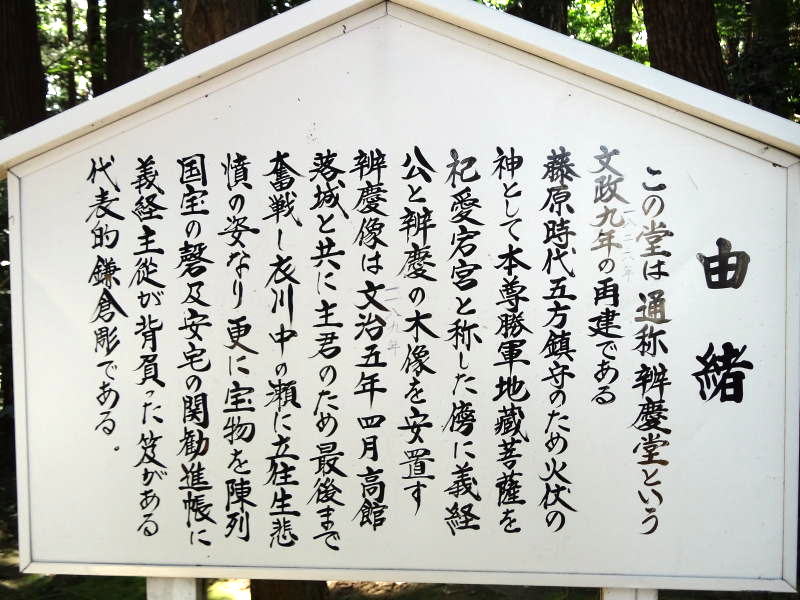 由緒
この堂は通称辨慶堂という
文政九年の再建である
一八二六年
藤原時代五方鎮守のため火伏の
神として本尊勝軍地蔵菩薩を
祀愛宕宮と称した傍に義経
公と辨慶の木像を安置す
辨慶像は文治五年四月高館
一一八九年
落城と共に主君のため最後まで
奮戦し衣川中の瀬に立往生悲
憤の姿なり更に宝物を陳列
国宝の磬及安宅の関勧進帳に
義経主従が背負った笈がある
代表的鎌倉彫である.